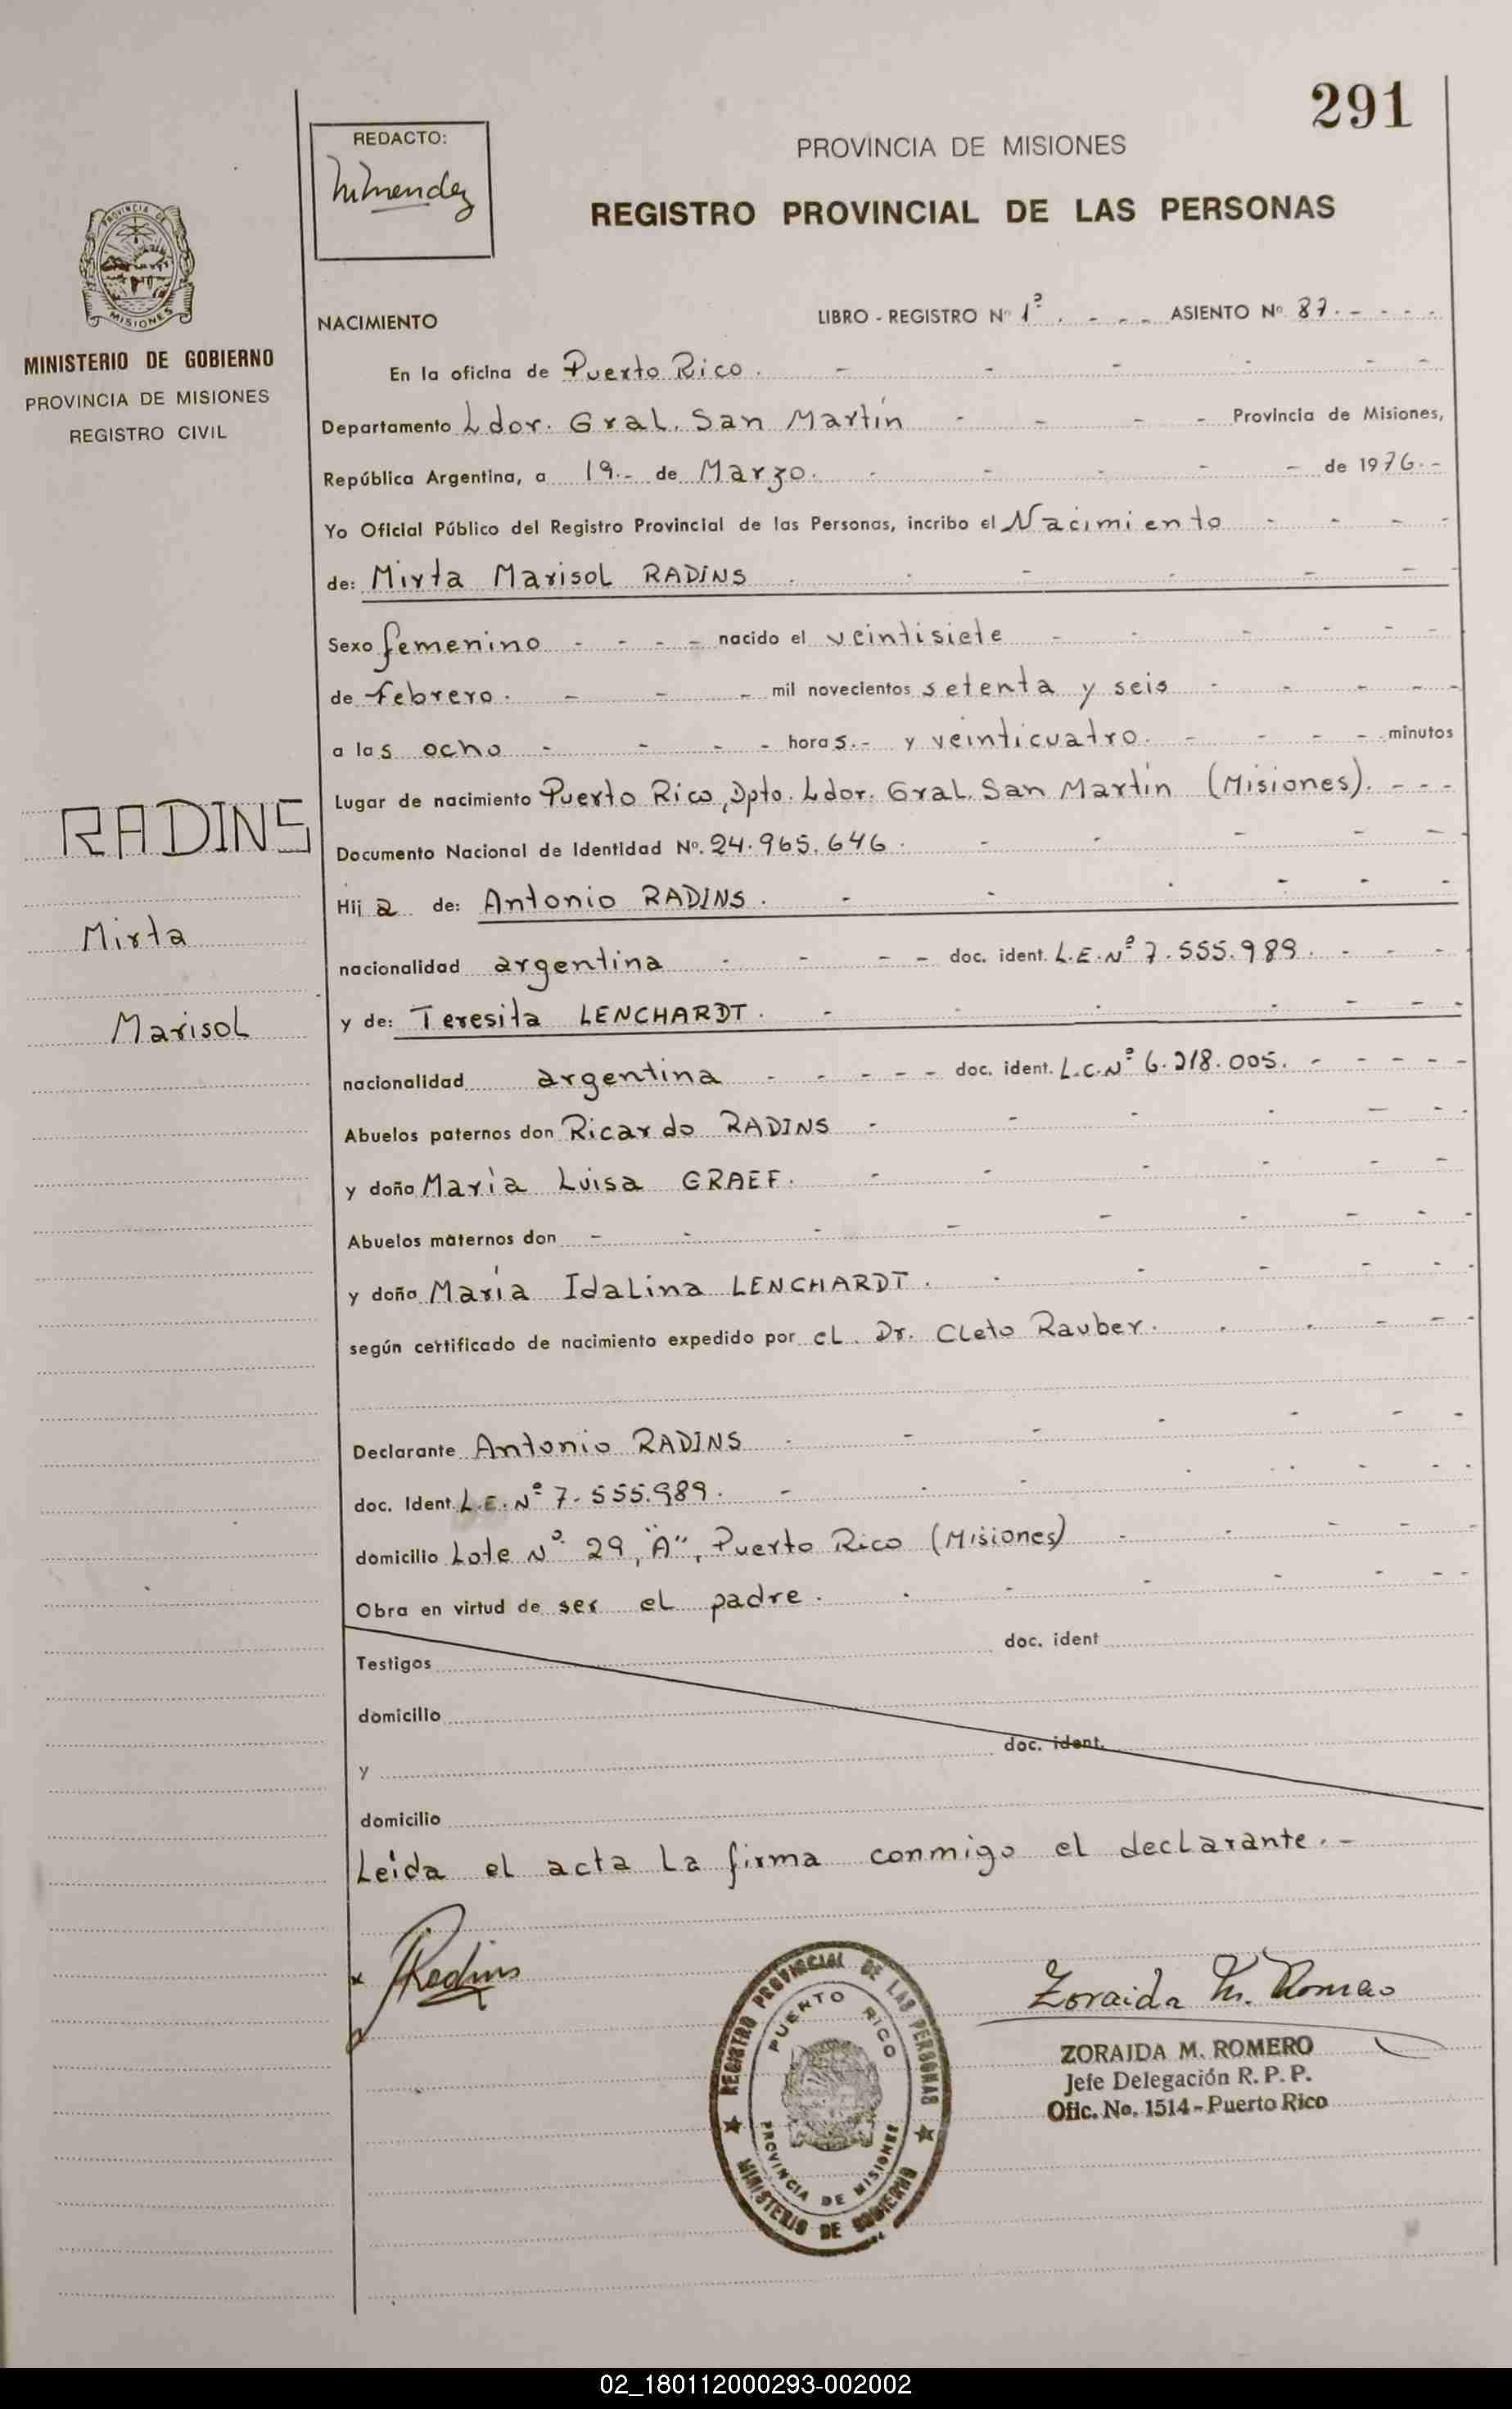 291
REDACTO:
PROVINCIA DE MISIONES
REGISTRO PROVINCIAL DE LAS PERSONAS
MISIONES
MINISTERIO DE GOBIERNO
PROVINCIA DE MISIONES
REGISTRO CIVIL
NACIMIENTO LIBRO - REGISTRO Nº 1º . - - - ASIENTO Nº 87. - - - -
En la oficina de Puerto Rico. - - - - - -
Departamento Ldor. Gral. San Martín - - - - Provincia de Misiones,
República Argentina, a 19.- de Marzo. - - - - - de 1976.-
Yo Oficial Público del Registro Provincial de las Personas, incribo el Nacimiento - - - -
de: Mirta Marisol RADINS . - - - - -
Sexo femenino - - - - nacido el veintisiete - - - - - -
de febrero. - - - mil novecientos setenta y seis - - - - -
a las ocho - - - - horas.- y veinticuatro. - - - - minutos
Lugar de nacimiento Puerto Rico, Dpto. Ldor. Gral. San Martín (Misiones). - - -
Documento Nacional de Identidad Nº. 24.965.646. - - - - - -
Hija de: Antonio RADINS. - - - - - -
nacionalidad argentina - - - - doc. ident. L.E.Nº 7.555.989. - - - -
y de: Teresita LENCHARDT. - - - - - - -
nacionalidad argentina - - - - - doc. ident. L.C.Nº 6.218.005. - - - - -
Abuelos paternos don Ricardo RADINS - - - - - - -
y doña María Luisa GRAEF. - - - - - -
Abuelos maternos don - - - - - - - - -
y doña María Idalina LENCHARDT. - - - - -
según certificado de nacimiento expedido por el Dr. Cleto Rauber. - - - - -
Declarante Antonio RADINS - - - - - - -
doc. Ident. L.E.Nº 7.555.989. - - - - - - -
domicilio Lote Nº 29, "A", Puerto Rico (Misiones) - - - - -
Obra en virtud de ser el padre. - - - - - - -
Testigos doc. ident
domicilio
y doc. ident.
domicilio
Leída el acta la firma conmigo el declarante.-
RADINS
Mirta
Marisol
Radins
REGISTRO PROVINCIAL DE LAS PERSONAS
PUERTO RICO
PROVINCIA DE MISIONES
MINISTERIO DE GOBIERNO
Zoraida M. Romero
ZORAIDA M. ROMERO
Jefe Delegación R. P. P.
Ofic. No. 1514 - Puerto Rico
02_180112000293-002002